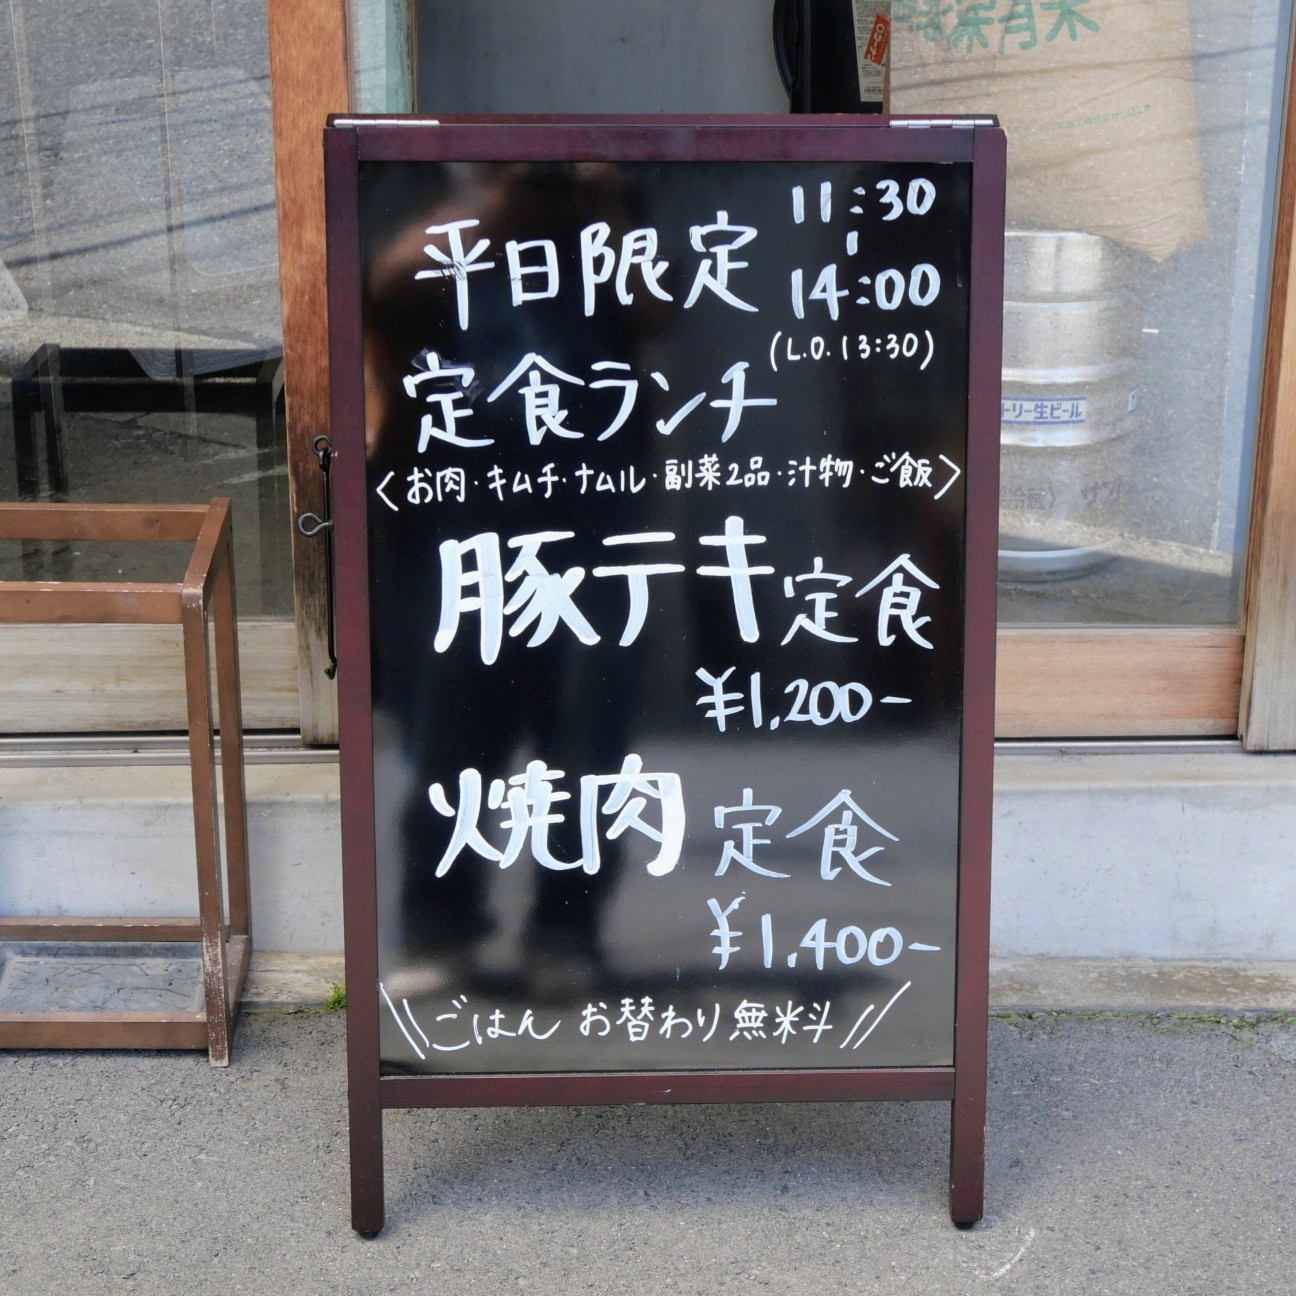 平日限定
11:30
〜
14:00
(L.O. 13:30)
定食ランチ
〈お肉・キムチ・ナムル・副菜2品・汁物・ご飯〉
豚テキ定食
¥1,200-
焼肉定食
¥1,400-
\\ごはん お替わり無料//
トリー生ビール